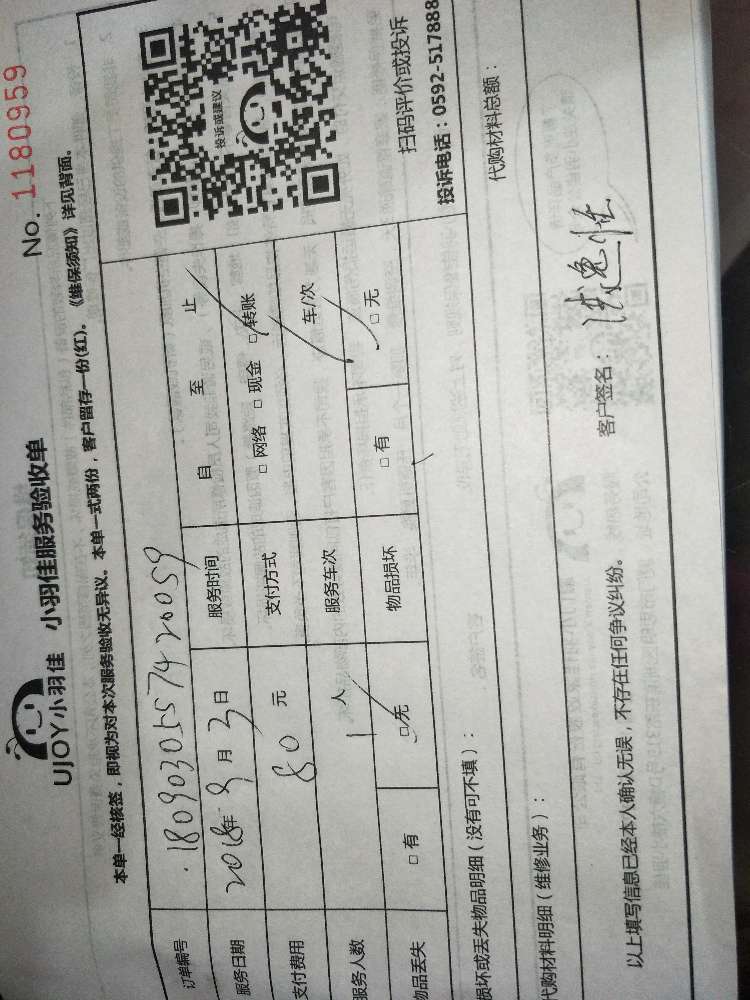 UJOY小羽佳 小羽佳服务验收单
No. 1180959
本单一经核签，即视为对本次服务验收无异议。本单一式两份，客户留存一份(红)。《维保须知》详见背面。
订单编号 180903055742 0059
服务日期 2018年9月3日 服务时间 自 至 止
支付费用 80 元 支付方式 □ 网络 □ 现金 □ 转账
服务人数 1 人 服务车次 车/次
物品丢失 □ 有 □ 无 物品损坏 □ 有 □ 无
投诉或建议
扫码评价或投诉
投诉电话：0592-517888
损坏或丢失物品明细（没有可不填）：
代购材料明细（维修业务）： 代购材料总额：
以上填写信息已经本人确认无误，不存在任何争议纠纷。 客户签名：